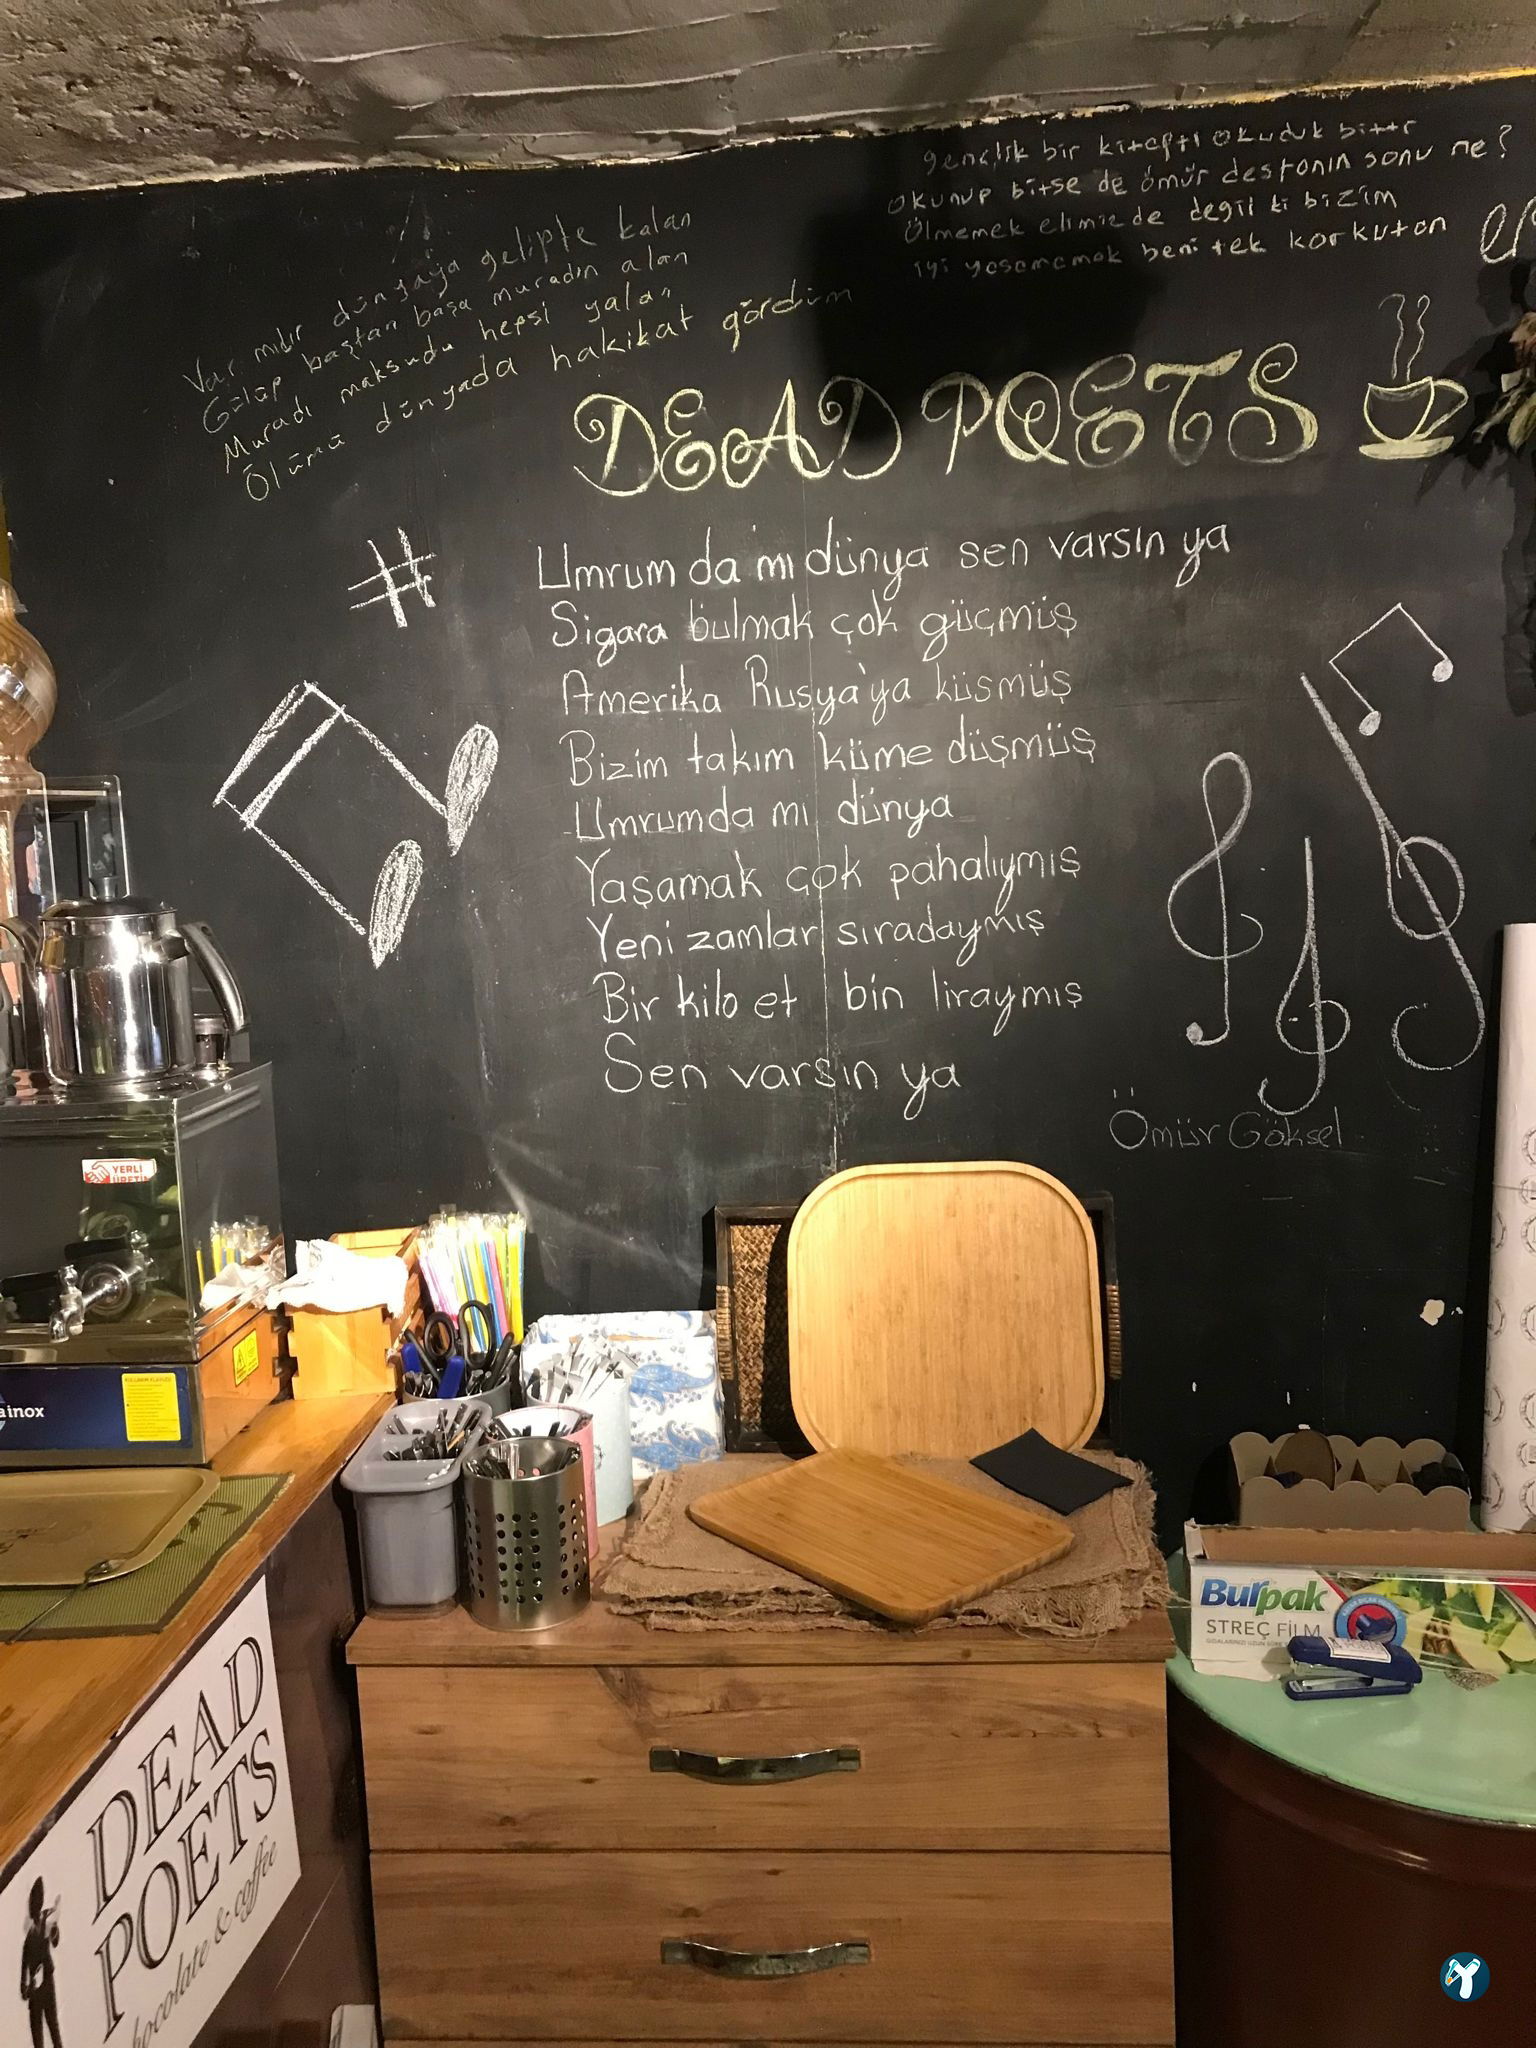 gençlik bir kitaptı okuduk bitti
okunup bitse de ömür destanın sonu ne?
Ölmemek elimizde değil ki bizim
iyi yaşamamak beni tek korkutan
Var mıdır dünyaya gelipte kalan
Gülüp baştan başa muradın alan
Muradı maksudu hepsi yalan
Ölümü dünyada hakikat gördüm
DEAD POETS
#
Umrum da mı dünya sen varsın ya
Sigara bulmak çok güçmüş
Amerika Rusya'ya küsmüş
Bizim takım küme düşmüş
Umrumda mı dünya
Yaşamak çok pahalıymış
Yeni zamlar sıradaymış
Bir kilo et bin liraymış
Sen varsın ya
Ömür Göksel
YERLİ
ÜRETİM
inox
Burpak
STREÇ FİLM
DEAD
POETS
chocolate & coffee